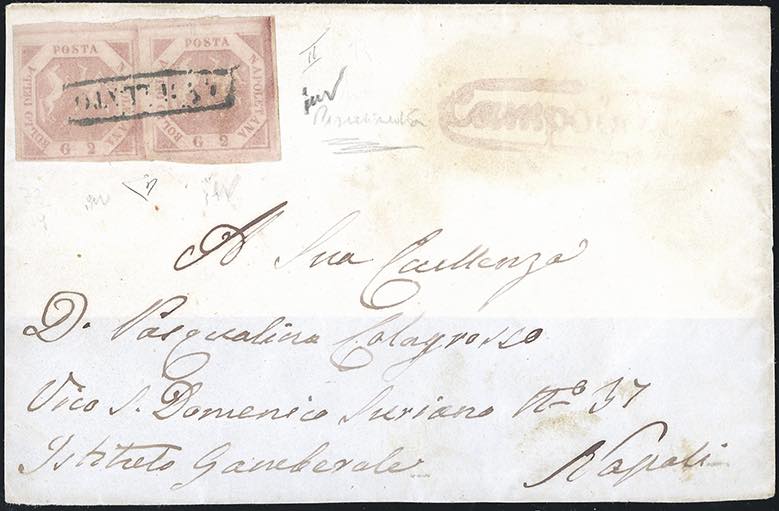 POSTA NAPOLETANA BOLLO DELLA G 2
POSTA NAPOLETANA BOLLO G 2
ANNULLATO
II
Campo
A Sua Eccellenza
D. Pasqualina Colagrosso
Vico S. Domenico Suriano Nº 37
Istituto Gamberale Napoli